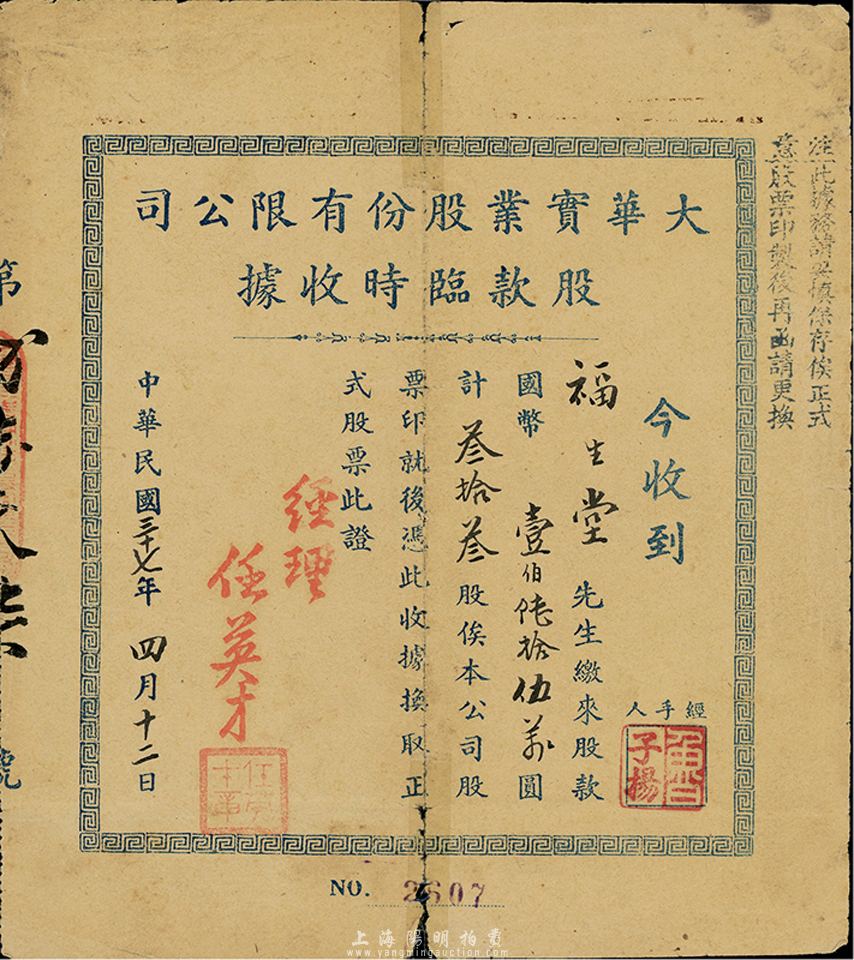 注此據務請妥慎保存俟正式
意股票印製後再函請更換
大華實業股份有限公司
股款臨時收據
今收到
福生堂先生繳來股款
國幣壹伯陸拾伍萬圓
計叁拾叁股俟本公司股
票印就後憑此收據換取正
式股票此證
經理
任英才
中華民國三十七年四月十二日
經手人
子揚
第
號
NO. 2607
上海陽明拍賣
www.yangmingauction.com